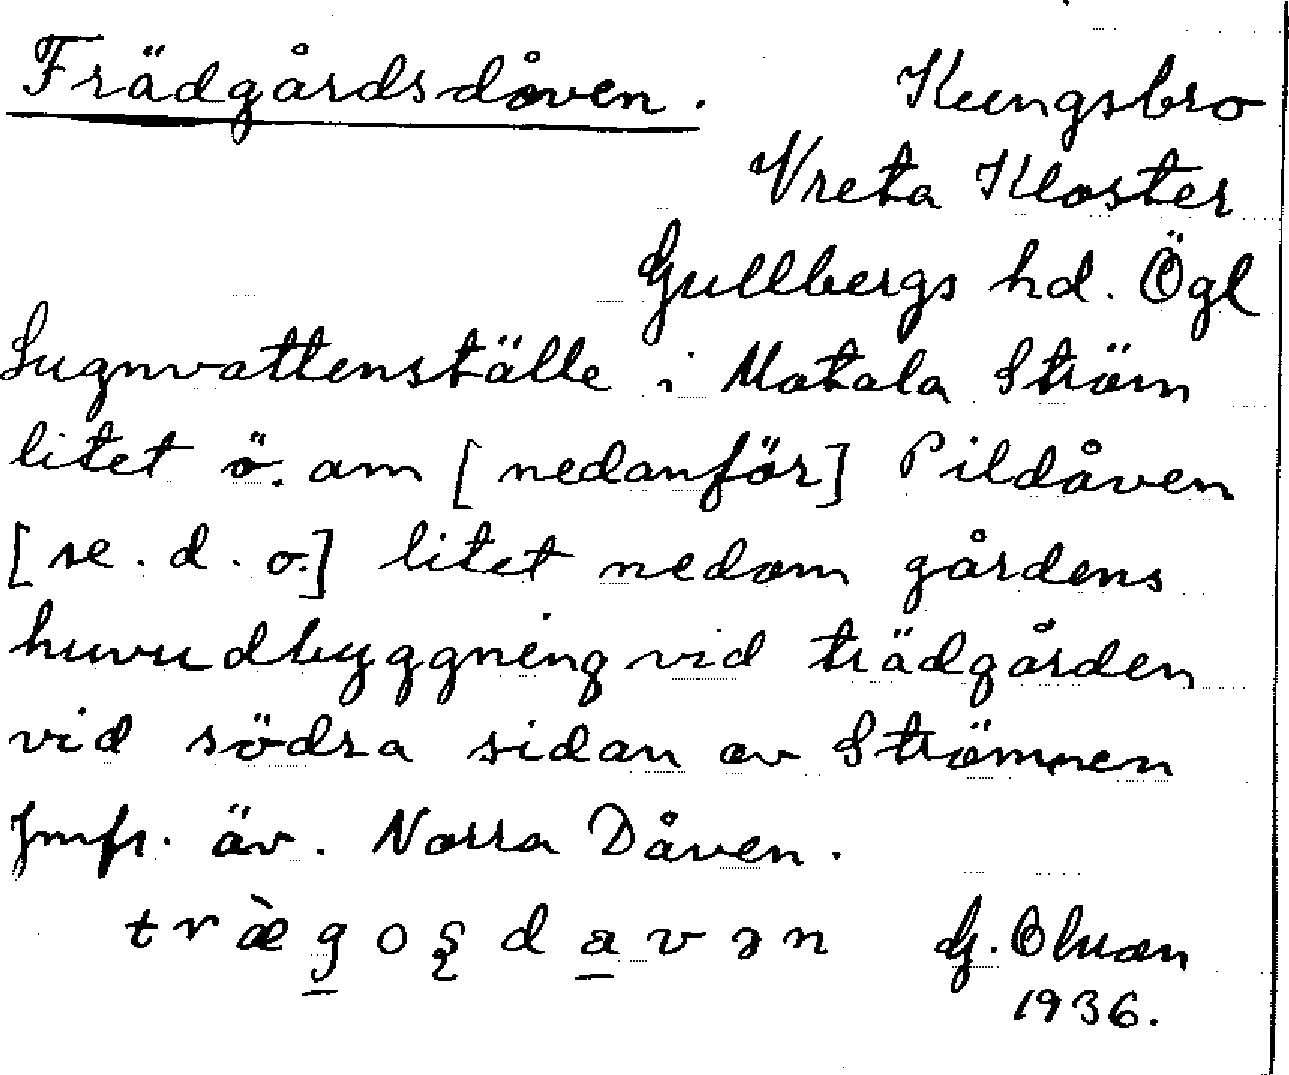 Trädgårdsdåven. Kungsbro
Vreta Kloster
Gullbergs hd. Ögl
Lugnvattenställe i Motala Ström
litet ö. om [nedanför] Pildåven
[se. d. o.] litet nedom gårdens
huvudbyggning vid trädgården
vid södra sidan av Strömmen
Jmfr. äv. Norra Dåven.
træ̀goʂdavən G.
1936.